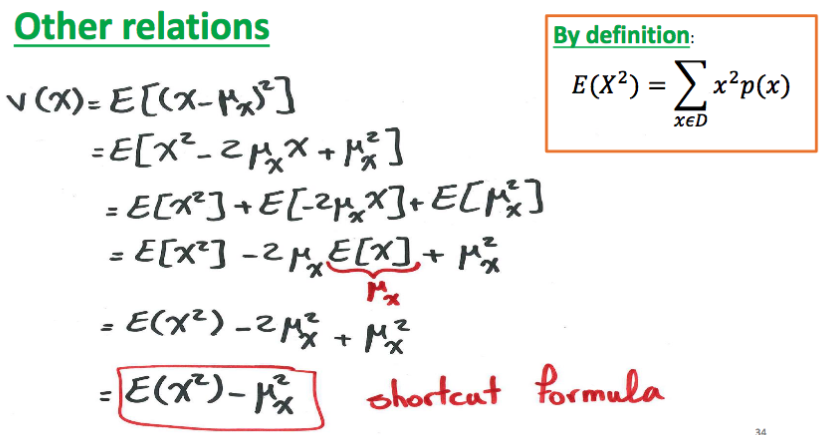 Other relations
By definition:
E(X²) = ∑ x²p(x)
xϵD
V(X) = E[(X-μₓ)²]
= E[X² - 2μₓX + μₓ²]
= E[X²] + E[-2μₓX] + E[μₓ²]
= E[X²] - 2μₓ E[X] + μₓ²
μₓ
= E(X²) - 2μₓ² + μₓ²
= E(X²) - μₓ² shortcut formula
34